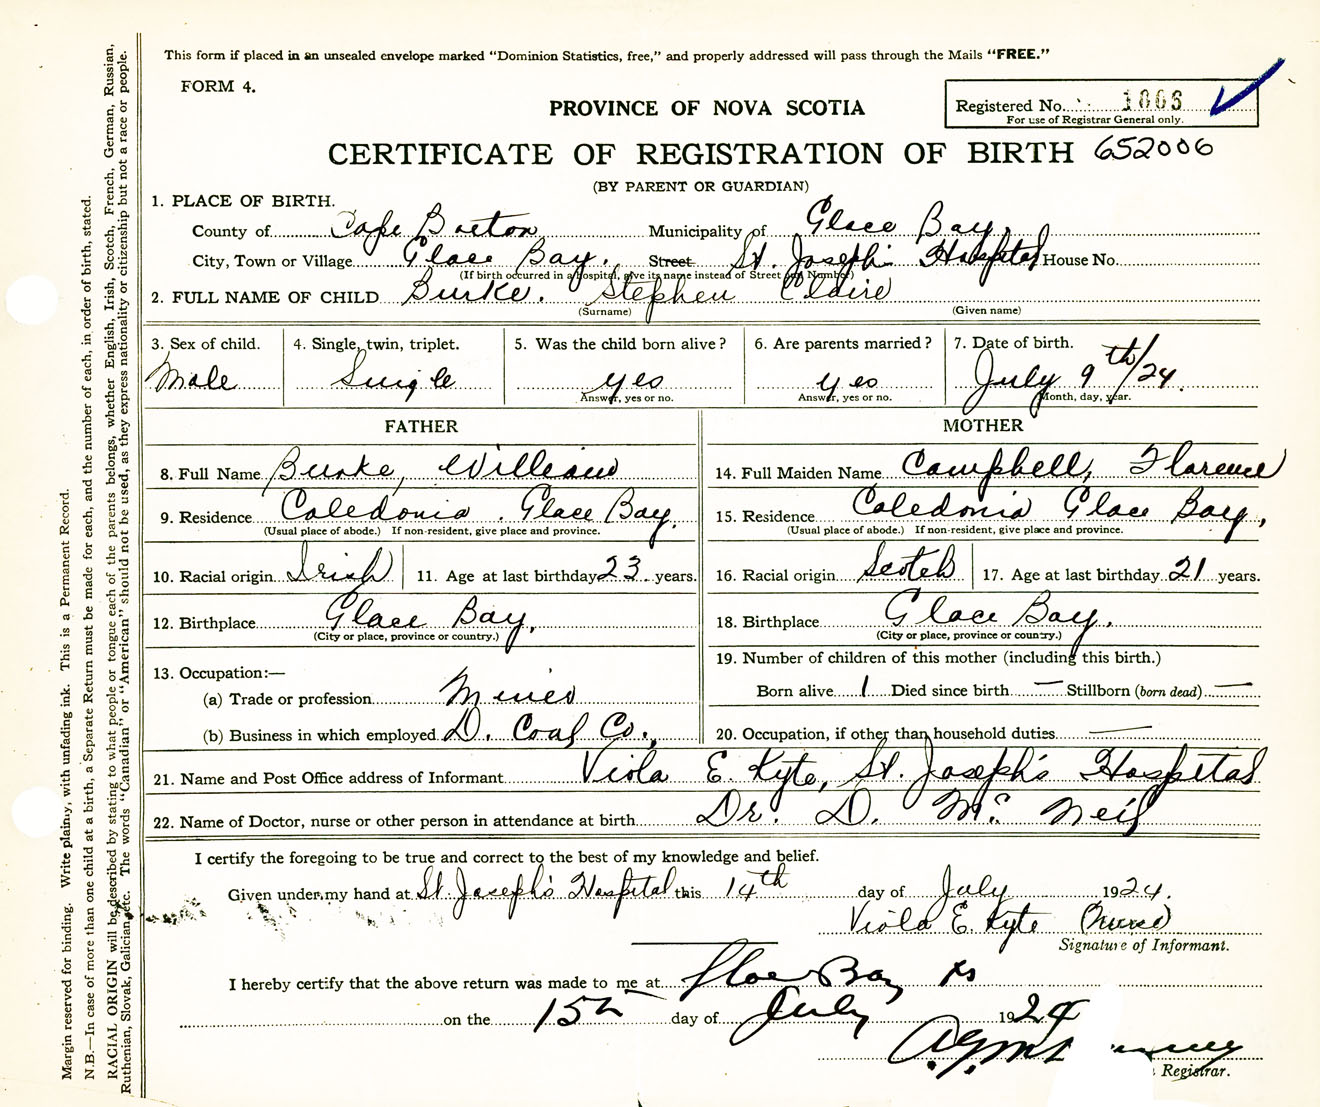 This form if placed in an unsealed envelope marked “Dominion Statistics, free,” and properly addressed will pass through the Mails “FREE.”
FORM 4.
Registered No. 1806
For use of Registrar General only.
PROVINCE OF NOVA SCOTIA
CERTIFICATE OF REGISTRATION OF BIRTH 652006
(BY PARENT OR GUARDIAN)
1. PLACE OF BIRTH.
County of Cape Breton Municipality of Glace Bay,
City, Town or Village Glace Bay. Street St. Joseph's Hospital House No.
(If birth occurred in a hospital, give its name instead of Street and Number)
2. FULL NAME OF CHILD Burke. Stephen Claire
(Surname) (Given name)
3. Sex of child. 4. Single, twin, triplet. 5. Was the child born alive? 6. Are parents married? 7. Date of birth.
Male Single yes yes July 9th/24.
Answer, yes or no. Answer, yes or no. Month, day, year.
FATHER MOTHER
8. Full Name Burke, William 14. Full Maiden Name Campbell, Florence
9. Residence Caledonia. Glace Bay, 15. Residence Caledonia Glace Bay,
(Usual place of abode.) If non-resident, give place and province. (Usual place of abode.) If non-resident, give place and province.
10. Racial origin Irish 11. Age at last birthday 23 years. 16. Racial origin Scotch 17. Age at last birthday 21 years.
12. Birthplace Glace Bay, 18. Birthplace Glace Bay,
(City or place, province or country.) (City or place, province or country.)
13. Occupation:— 19. Number of children of this mother (including this birth.)
(a) Trade or profession Miner Born alive 1 Died since birth — Stillborn (born dead) —
(b) Business in which employed D. Coal Co., 20. Occupation, if other than household duties —
21. Name and Post Office address of Informant Viola E. Kyte, St. Joseph's Hospital
22. Name of Doctor, nurse or other person in attendance at birth Dr. D. Mc Neil
I certify the foregoing to be true and correct to the best of my knowledge and belief.
Given under my hand at St. Joseph's Hospital this 14th day of July 1924.
Viola E. Kyte (Nurse)
Signature of Informant.
I hereby certify that the above return was made to me at Glace Bay
on the 15th day of July 1924
Registrar.
Margin reserved for binding. Write plainly, with unfading ink. This is a Permanent Record.
N.B.—In case of more than one child at a birth, a Separate Return must be made for each, and the number of each, in order of birth, stated.
RACIAL ORIGIN will be described by stating to what people or tongue each of the parents belongs, whether English, Irish, Scotch, French, German, Russian,
Ruthenian, Slovak, Galician, etc. The words “Canadian” or “American” should not be used, as they express nationality or citizenship but not a race or people.